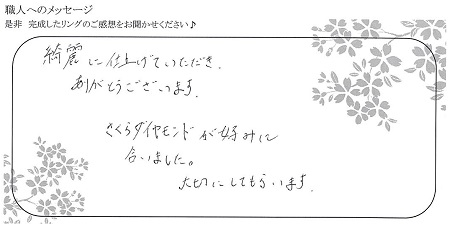 職人へのメッセージ
是非 完成したリングのご感想をお聞かせください♪
綺麗に仕上げていただき、
ありがとうございます。
さくらダイヤモンドが好みに
合いました。
大切にしてもらいます。